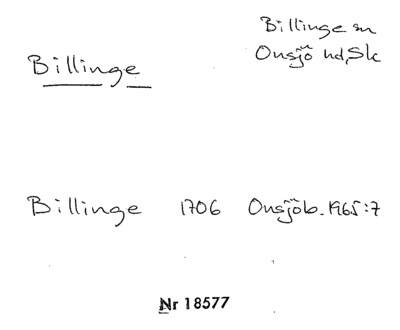 Billinge
Billinge sn
Onsjö hd, Sk
Billinge 1706 Onsjöb. 1965:7
Nr 18577